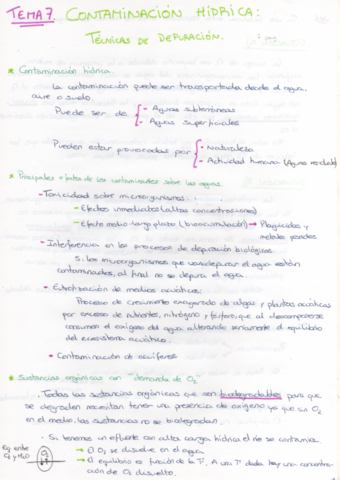 TEMA 7. CONTAMINACIÓN HÍDRICA:
TÉCNICAS DE DEPURACIÓN.
* Contaminación hídrica.
La contaminación puede ser transportada desde el agua,
aire o suelo.
Puede ser de
- Aguas subterráneas
- Aguas superficiales
Pueden estar provocadas por
- Naturaleza
- Actividad humana (Aguas residuales)
* Principales efectos de los contaminantes sobre las aguas.
- Toxicidad sobre microorganismos:
- Efectos inmediatos (altas concentraciones)
- Efecto medio-largo plazo (bioacumulación) → Plaguicidas y
metales pesados
- Interferencia en los procesos de depuración biológicos.
Si los microorganismos que van a depurar el agua están
contaminados, al final no se depura el agua.
- Eutrofización de medios acuáticos:
Proceso de crecimiento exagerado de algas y plantas acuáticas
por exceso de nutrientes, nitrógeno y fósforo, que al descomponerse
consumen el oxígeno del agua, alterando seriamente el equilibrio
del ecosistema acuático.
- Contaminación de acuíferos.
* Sustancias orgánicas con "demanda de O₂"
Todas las sustancias orgánicas que son biodegradables para que
se degraden necesitan tener una presencia de oxígeno ya que sin O₂
en el medio, las sustancias no se biodegradan.
· Si tenemos un efluente con alta carga hídrica el río se contamina.
Eq entre
O₂ y H₂O
O₂
→ El O₂ se disuelve en el agua
→ El equilibrio es función de la Tª. A una Tª dada hay una concentra-
ción de O₂ disuelto.